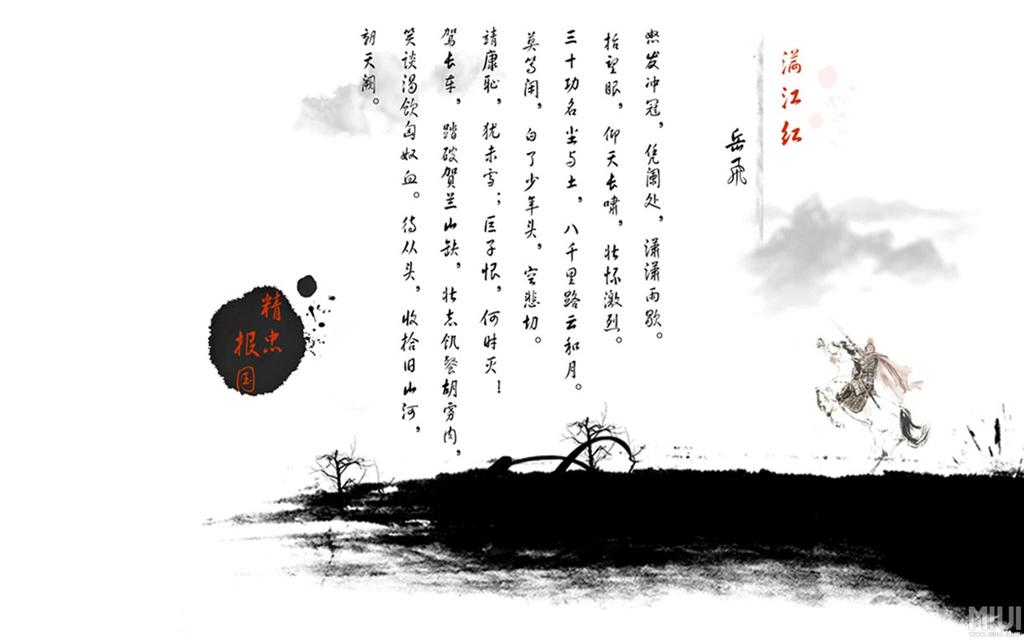 满江红
岳飛
怒发冲冠，凭阑处，潇潇雨歇。
抬望眼，仰天长啸，壮怀激烈。
三十功名尘与土，八千里路云和月。
莫等闲，白了少年头，空悲切。
靖康耻，犹未雪；臣子恨，何时灭！
驾长车，踏破贺兰山缺，壮志饥餐胡虏肉，
笑谈渴饮匈奴血。待从头，收拾旧山河，
朝天阙。
精忠
报国
MIUI